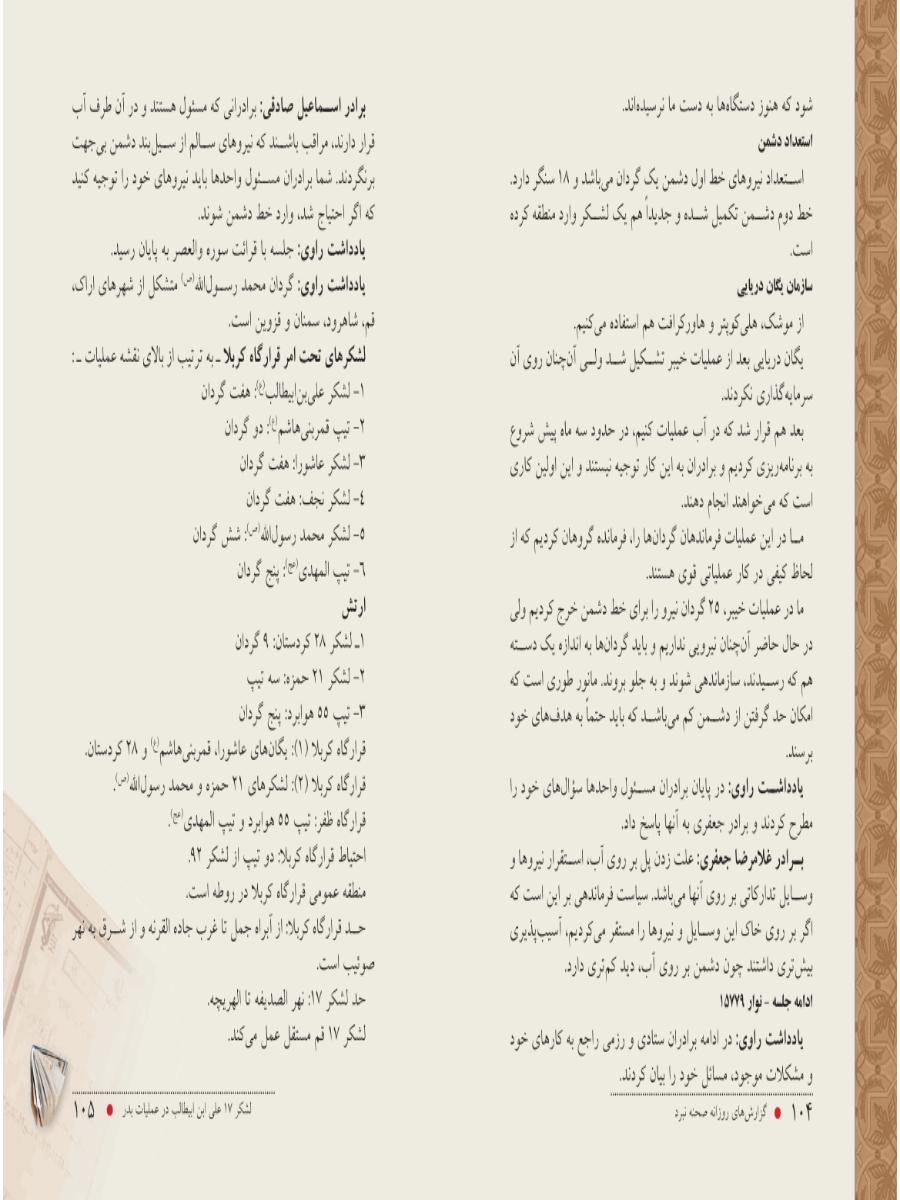 شود که هنوز دستگاه‌ها به دست ما نرسیده‌اند.
استعداد دشمن
استعداد نیروهای خط اول دشمن یک گردان می‌باشد و ۱۸ سنگر دارد.
خط دوم دشمن تکمیل شده و جدیداً هم یک لشکر وارد منطقه کرده
است.
سازمان یگان دریایی
از موشک، هلی‌کوپتر و هاورکرافت هم استفاده می‌کنیم.
یگان دریایی بعد از عملیات خیبر تشکیل شد ولی آن‌چنان روی آن
سرمایه‌گذاری نکردند.
بعد هم قرار شد که در آب عملیات کنیم، در حدود سه ماه پیش شروع
به برنامه‌ریزی کردیم و برادران به این کار توجیه نیستند و این اولین کاری
است که می‌خواهند انجام دهند.
ما در این عملیات فرماندهان گردان‌ها را، فرمانده گروهان کردیم که از
لحاظ کیفی در کار عملیاتی قوی هستند.
ما در عملیات خیبر، ۲۵ گردان نیرو را برای خط دشمن خرج کردیم ولی
در حال حاضر آن‌چنان نیرویی نداریم و باید گردان‌ها به اندازه یک دسته
هم که رسیدند، سازماندهی شوند و به جلو بروند. مانور طوری است که
امکان حد گرفتن از دشمن کم می‌باشد که باید حتماً به هدف‌های خود
برسند.
یادداشت راوی: در پایان برادران مسئول واحدها سؤال‌های خود را
مطرح کردند و برادر جعفری به آنها پاسخ داد.
برادر غلامرضا جعفری: علت زدن پل بر روی آب، استقرار نیروها و
وسایل تدارکاتی بر روی آنها می‌باشد. سیاست فرماندهی بر این است که
اگر بر روی خاک این وسایل و نیروها را مستقر می‌کردیم، آسیب‌پذیری
بیش‌تری داشتند چون دشمن بر روی آب، دید کم‌تری دارد.
ادامه جلسه - نوار ۱۵۷۷۹
یادداشت راوی: در ادامه برادران ستادی و رزمی راجع به کارهای خود
و مشکلات موجود، مسائل خود را بیان کردند.
۱۰۴ • گزارش‌های روزانه صحنه نبرد
برادر اسماعیل صادقی: برادرانی که مسئول هستند و در آن طرف آب
قرار دارند، مراقب باشند که نیروهای سالم از سیل‌بند دشمن بی‌جهت
برنگردند. شما برادران مسئول واحدها باید نیروهای خود را توجیه کنید
که اگر احتیاج شد، وارد خط دشمن شوند.
یادداشت راوی: جلسه با قرائت سوره والعصر به پایان رسید.
یادداشت راوی: گردان محمد رسول‌الله(ص) متشکل از شهرهای اراک،
قم، شاهرود، سمنان و قزوین است.
لشکرهای تحت امر قرارگاه کربلا ـ به ترتیب از بالای نقشه عملیات ـ:
۱- لشکر علی‌بن‌ابیطالب(ع): هفت گردان
۲- تیپ قمربنی‌هاشم(ع): دو گردان
۳- لشکر عاشورا: هفت گردان
٤- لشکر نجف: هفت گردان
۵- لشکر محمد رسول‌الله(ص): شش گردان
٦- تیپ المهدی(عج): پنج گردان
ارتش
۱ـ لشکر ۲۸ کردستان: ۹ گردان
۲- لشکر ۲۱ حمزه: سه تیپ
۳- تیپ ۵۵ هوابرد: پنج گردان
قرارگاه کربلا (۱): یگان‌های عاشورا، قمربنی‌هاشم(ع) و ۲۸ کردستان.
قرارگاه کربلا (۲): لشکرهای ۲۱ حمزه و محمد رسول‌الله(ص).
قرارگاه ظفر: تیپ ۵۵ هوابرد و تیپ المهدی(عج).
احتیاط قرارگاه کربلا: دو تیپ از لشکر ۹۲.
منطقه عمومی قرارگاه کربلا در روطه است.
حد قرارگاه کربلا: از آبراه جمل تا غرب جاده القرنه و از شرق به نهر
صوئیب است.
حد لشکر ۱۷: نهر الصدیفه تا الهریچه.
لشکر ۱۷ قم مستقل عمل می‌کند.
لشکر ۱۷ علی ابن ابیطالب در عملیات بدر • ۱۰۵